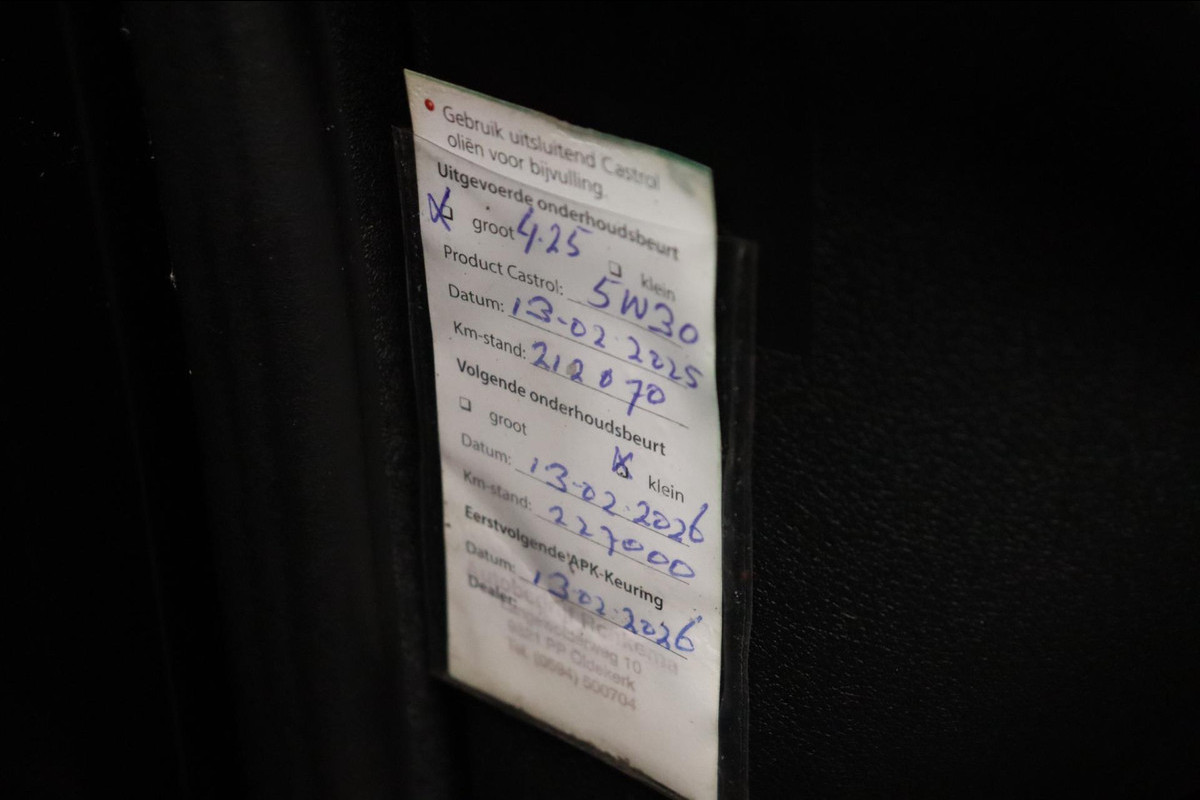 Gebruik uitsluitend Castrol
oliën voor bijvulling.
Uitgevoerde onderhoudsbeurt
groot 4.25 klein
Product Castrol: 5W30
Datum: 13-02 2025
Km-stand: 212070
Volgende onderhoudsbeurt
groot klein
Datum: 13-02-2026
Km-stand: 227000
Eerstvolgende APK-Keuring
Datum: 13-02-2026
Dealer:
10
PP Oldekerk
Tel. (0594) 500704